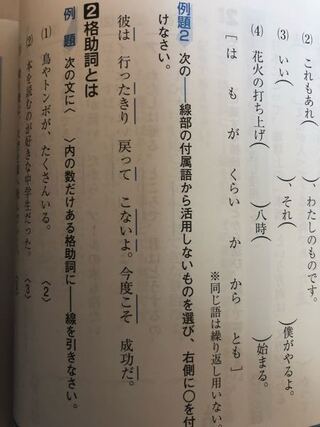 (2) これもあれ( )、わたしのものです。
(3) いい( )、それ( )僕がやるよ。
(4) 花火の打ち上げ( )八時( )始まる。
[は も が くらい か から とも]
※同じ語は繰り返し用いない。
例題2 次の──線部の付属語から活用しないものを選び、右側に○を付
けなさい。
彼は 行ったきり 戻って こないよ。今度こそ 成功だ。
2 格助詞とは
例 題 次の文に〈 〉内の数だけある格助詞に──線を引きなさい。
(1) 鳥やトンボが、たくさんいる。 〈2〉
(2) 本を読むのが好きな中学生だった。 〈3〉